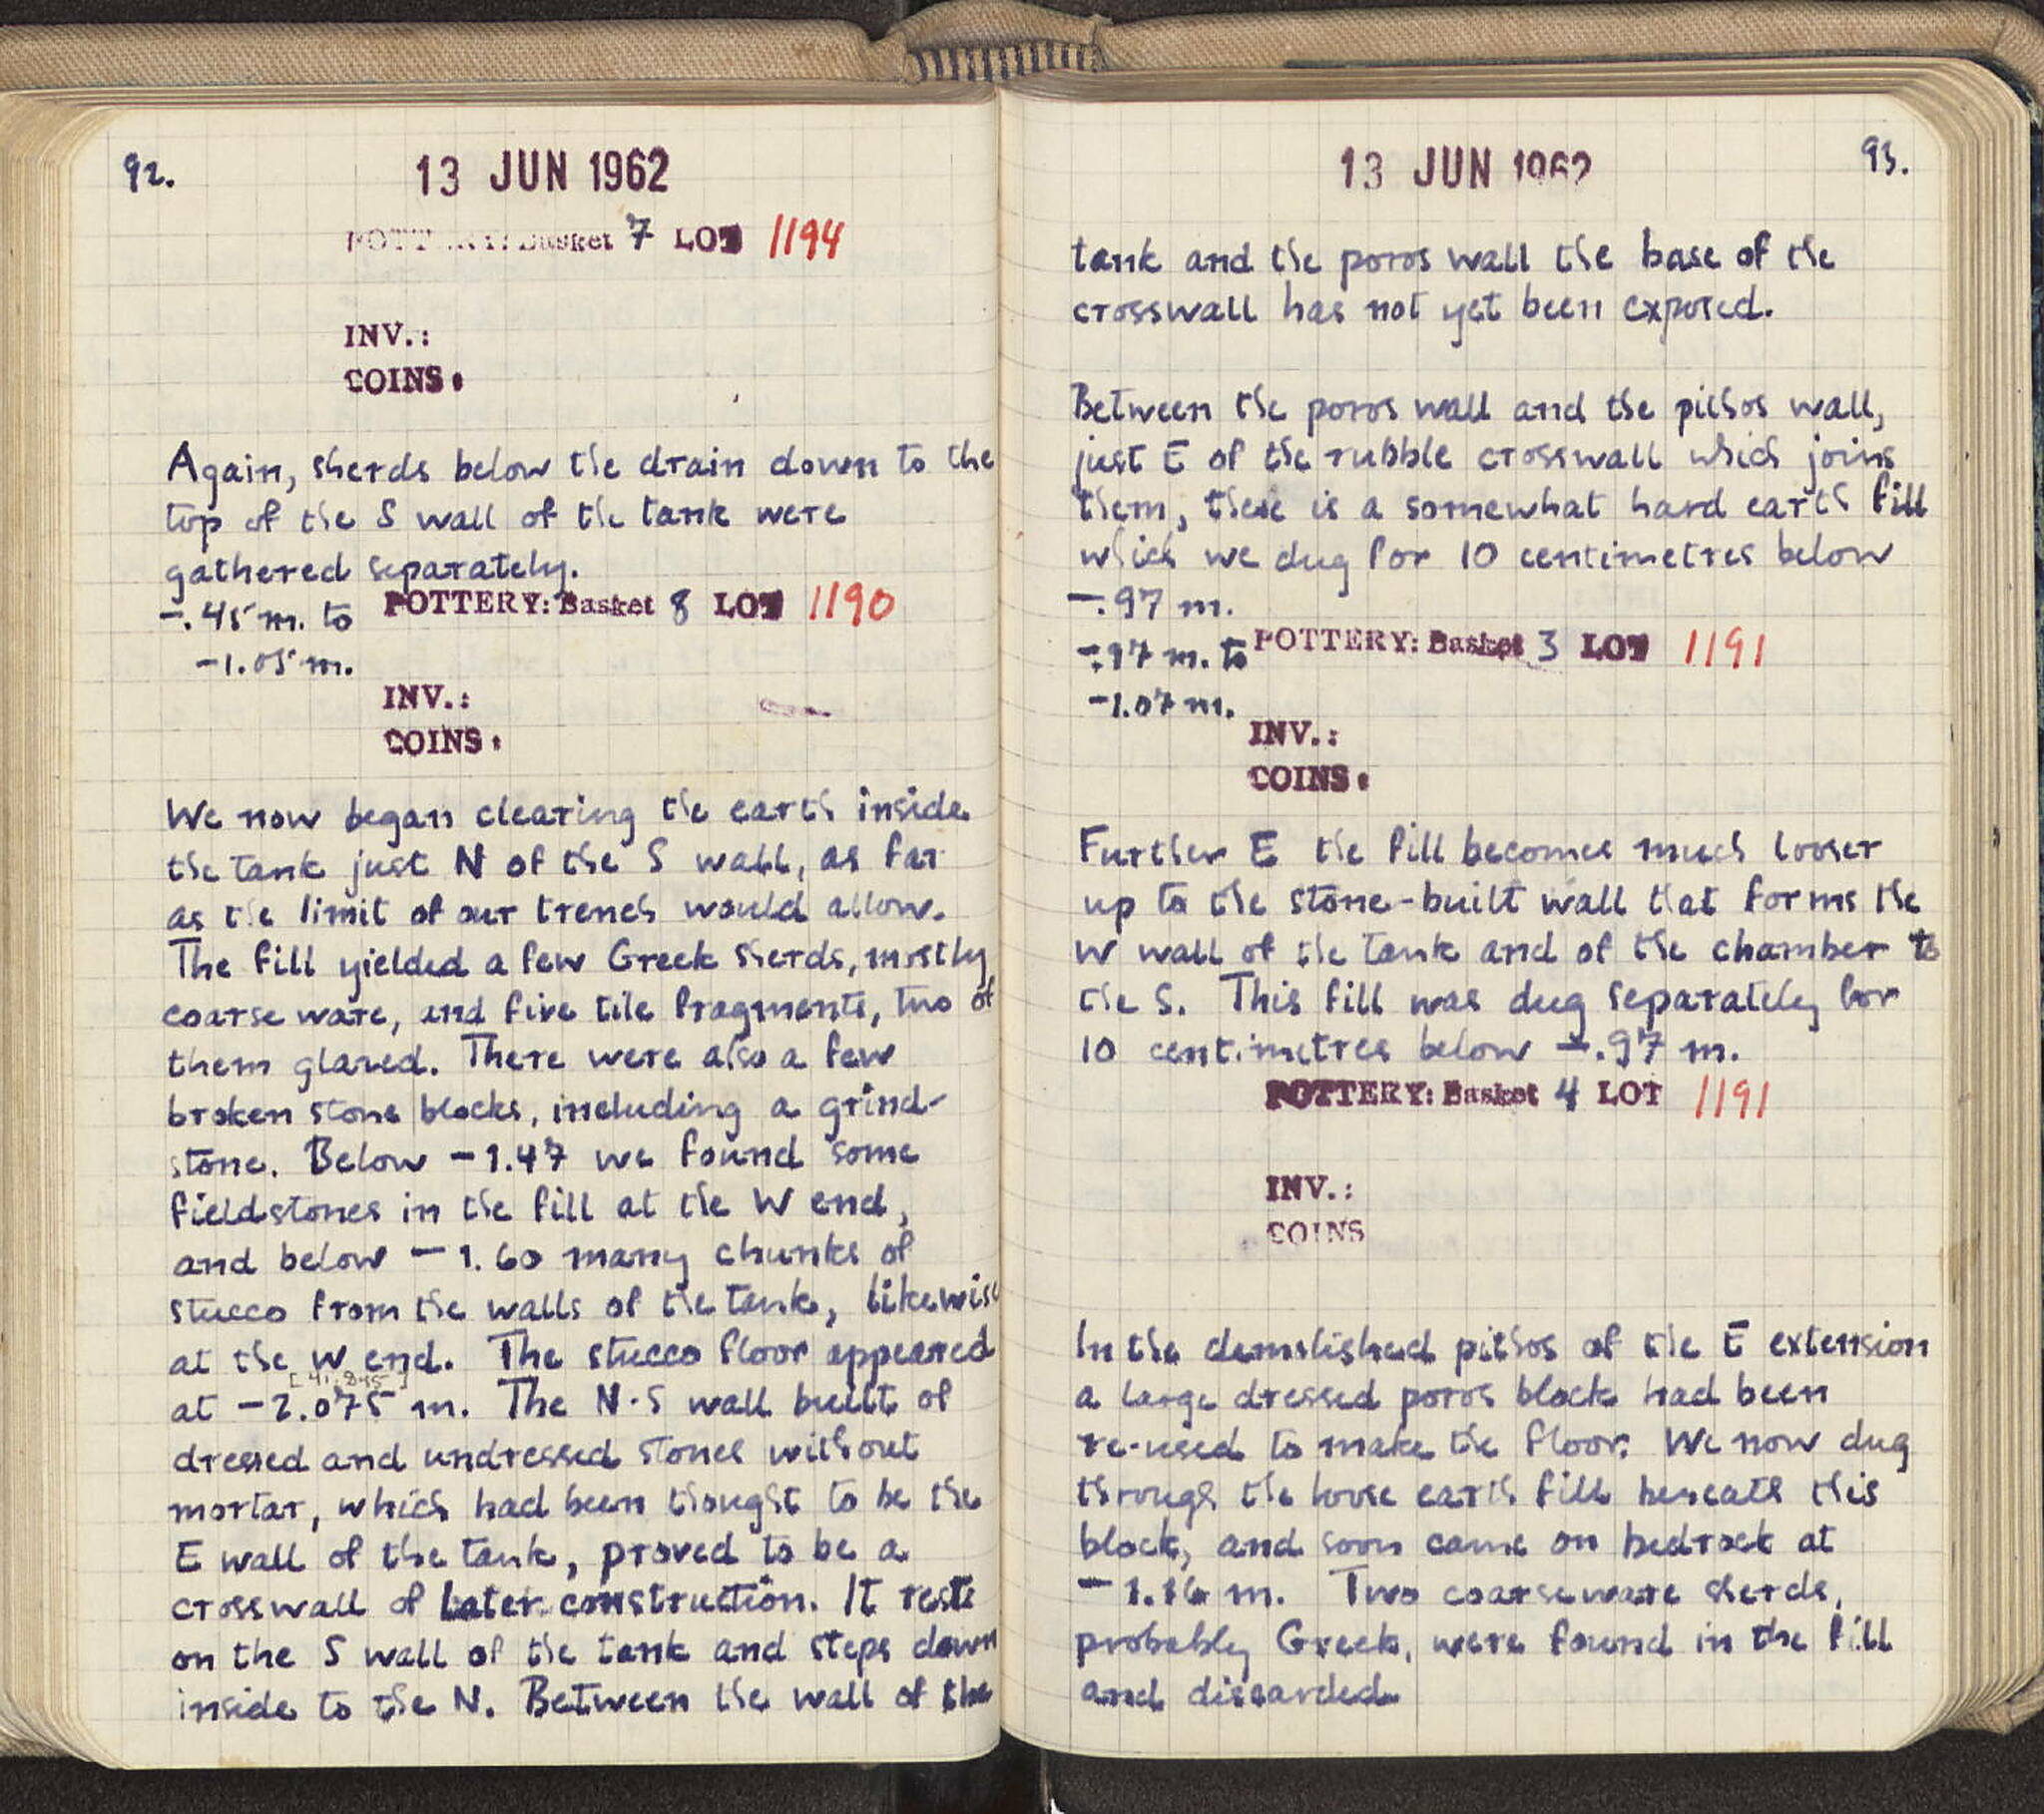 92.
13 JUN 1962
POTTERY: Basket 7 LOT 1194
INV.:
COINS:
Again, sherds below the drain down to the
top of the S wall of the tank were
gathered separately.
-.45 m. to POTTERY: Basket 8 LOT 1190
-1.05 m.
INV.:
COINS:
We now began clearing the earth inside
the tank just N of the S wall, as far
as the limit of our trench would allow.
The fill yielded a few Greek sherds, mostly
coarse ware, and five tile fragments, two of
them glazed. There were also a few
broken stone blocks, including a grind-
stone. Below -1.47 we found some
fieldstones in the fill at the W end,
and below -1.60 many chunks of
stucco from the walls of the tank, likewise
at the W end. The stucco floor appeared
[41.845]
at -2.075 m. The N-S wall built of
dressed and undressed stones without
mortar, which had been thought to be the
E wall of the tank, proved to be a
crosswall of later construction. It rests
on the S wall of the tank and steps down
inside to the N. Between the wall of the
13 JUN 1962
93.
tank and the poros wall the base of the
crosswall has not yet been exposed.
Between the poros wall and the pithos wall,
just E of the rubble crosswall which joins
them, there is a somewhat hard earth fill
which we dug for 10 centimetres below
-.97 m.
-.97 m. to POTTERY: Basket 3 LOT 1191
-1.07 m.
INV.:
COINS:
Further E the fill becomes much looser
up to the stone-built wall that forms the
W wall of the tank and of the chamber to
the S. This fill was dug separately for
10 centimetres below -.97 m.
POTTERY: Basket 4 LOT 1191
INV.:
COINS
In the demolished pithos of the E extension
a large dressed poros block had been
re-used to make the floor. We now dug
through the loose earth fill beneath this
block, and soon came on bedrock at
-1.16 m. Two coarseware sherds,
probably Greek, were found in the fill
and discarded.